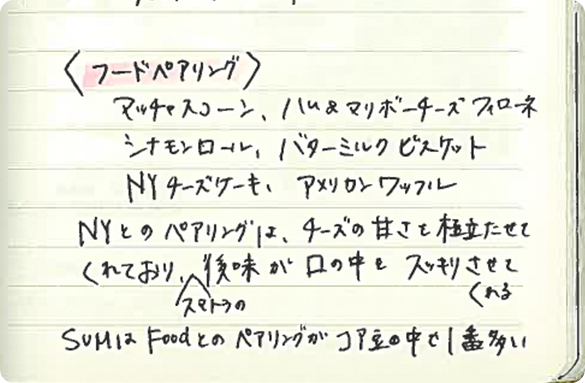 〈フードペアリング〉
マッチャスコーン、ハム&マリボーチーズフィローネ
シナモンロール、バターミルクビスケット
NYチーズケーキ、アメリカンワッフル
NYとのペアリングは、チーズの甘さを極立たせて
くれており、後味が口の中をスッキリさせて
スマトラの くれる
SUMはFoodとのペアリングがコア豆の中で1番多い